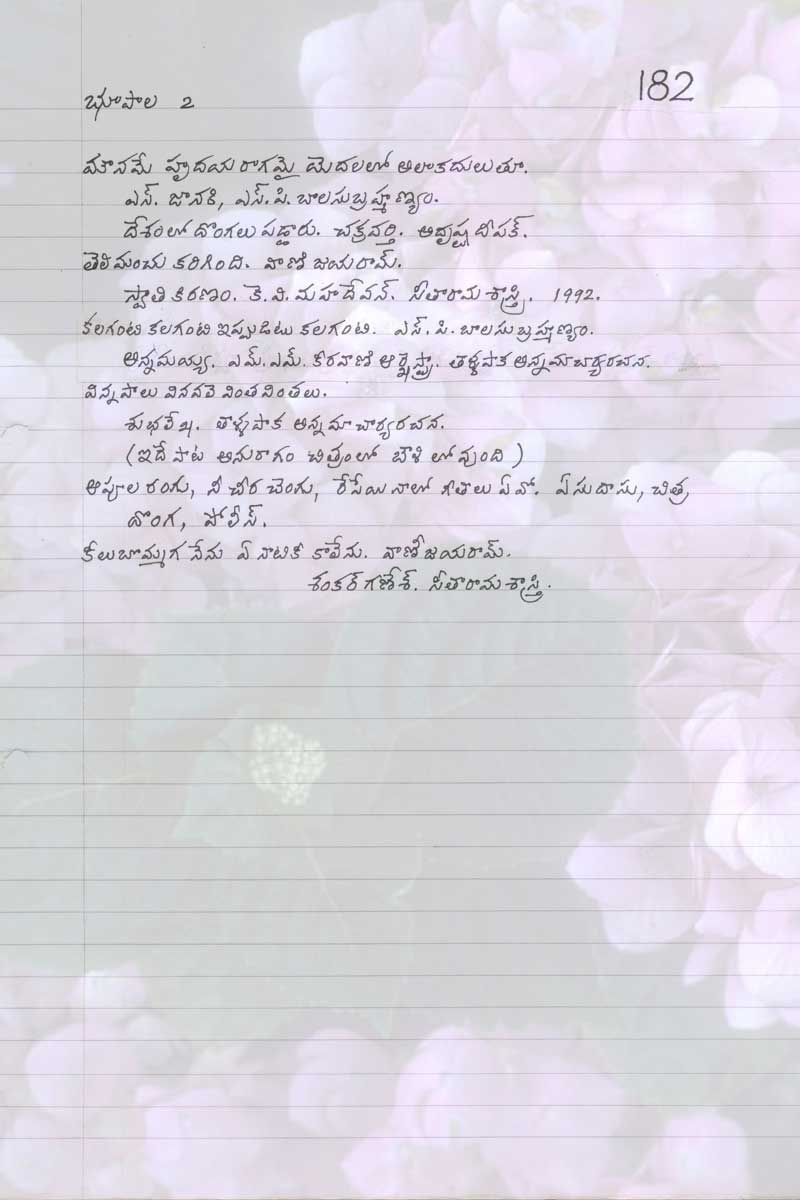 182
భూపాల 2
మౌనమే హృదయ రాగమై మెదలలో అలాకదులుతూ.
ఎస్. జానకి, ఎస్.పి. బాలసుబ్రహ్మణ్యం.
దేశంలో దొంగలు పడ్డారు. చక్రవర్తి. అదృష్ట దీపక్.
తెలిమంచు కరిగింది. వాణీ జయరామ్.
స్వాతి కిరణం. కె.వి. మహదేవన్. సీతారామ శాస్త్రి. 1992.
కలగంటి కలగంటి ఇప్పుడిటు కలగంటి. ఎస్.పి. బాలసుబ్రహ్మణ్యం.
అన్నమయ్య. ఎమ్.ఎమ్. కీరవాణి ఆర్కెస్ట్రా. తాళ్ళపాక అన్నమాచార్యరచన.
విన్నపాలు వినవలె వింతవింతలు.
శుభలేఖ. తాళ్ళపాక అన్నమాచార్యరచన.
(ఇదే పాట అనురాగం చిత్రంలో బౌళి లో వుంది)
ఆవుల రంగు, నీ చీర చెంగు, రేపేయి నాలో గీతాలు ఏవో. ఏసుదాసు, చిత్ర
దొంగ, పోలీస్.
కీలుబొమ్మగ నేను ఏ నాటికీ కాలేను. వాణీ జయరామ్.
శంకర్ గణేశ్. సీతారామ శాస్త్రి.